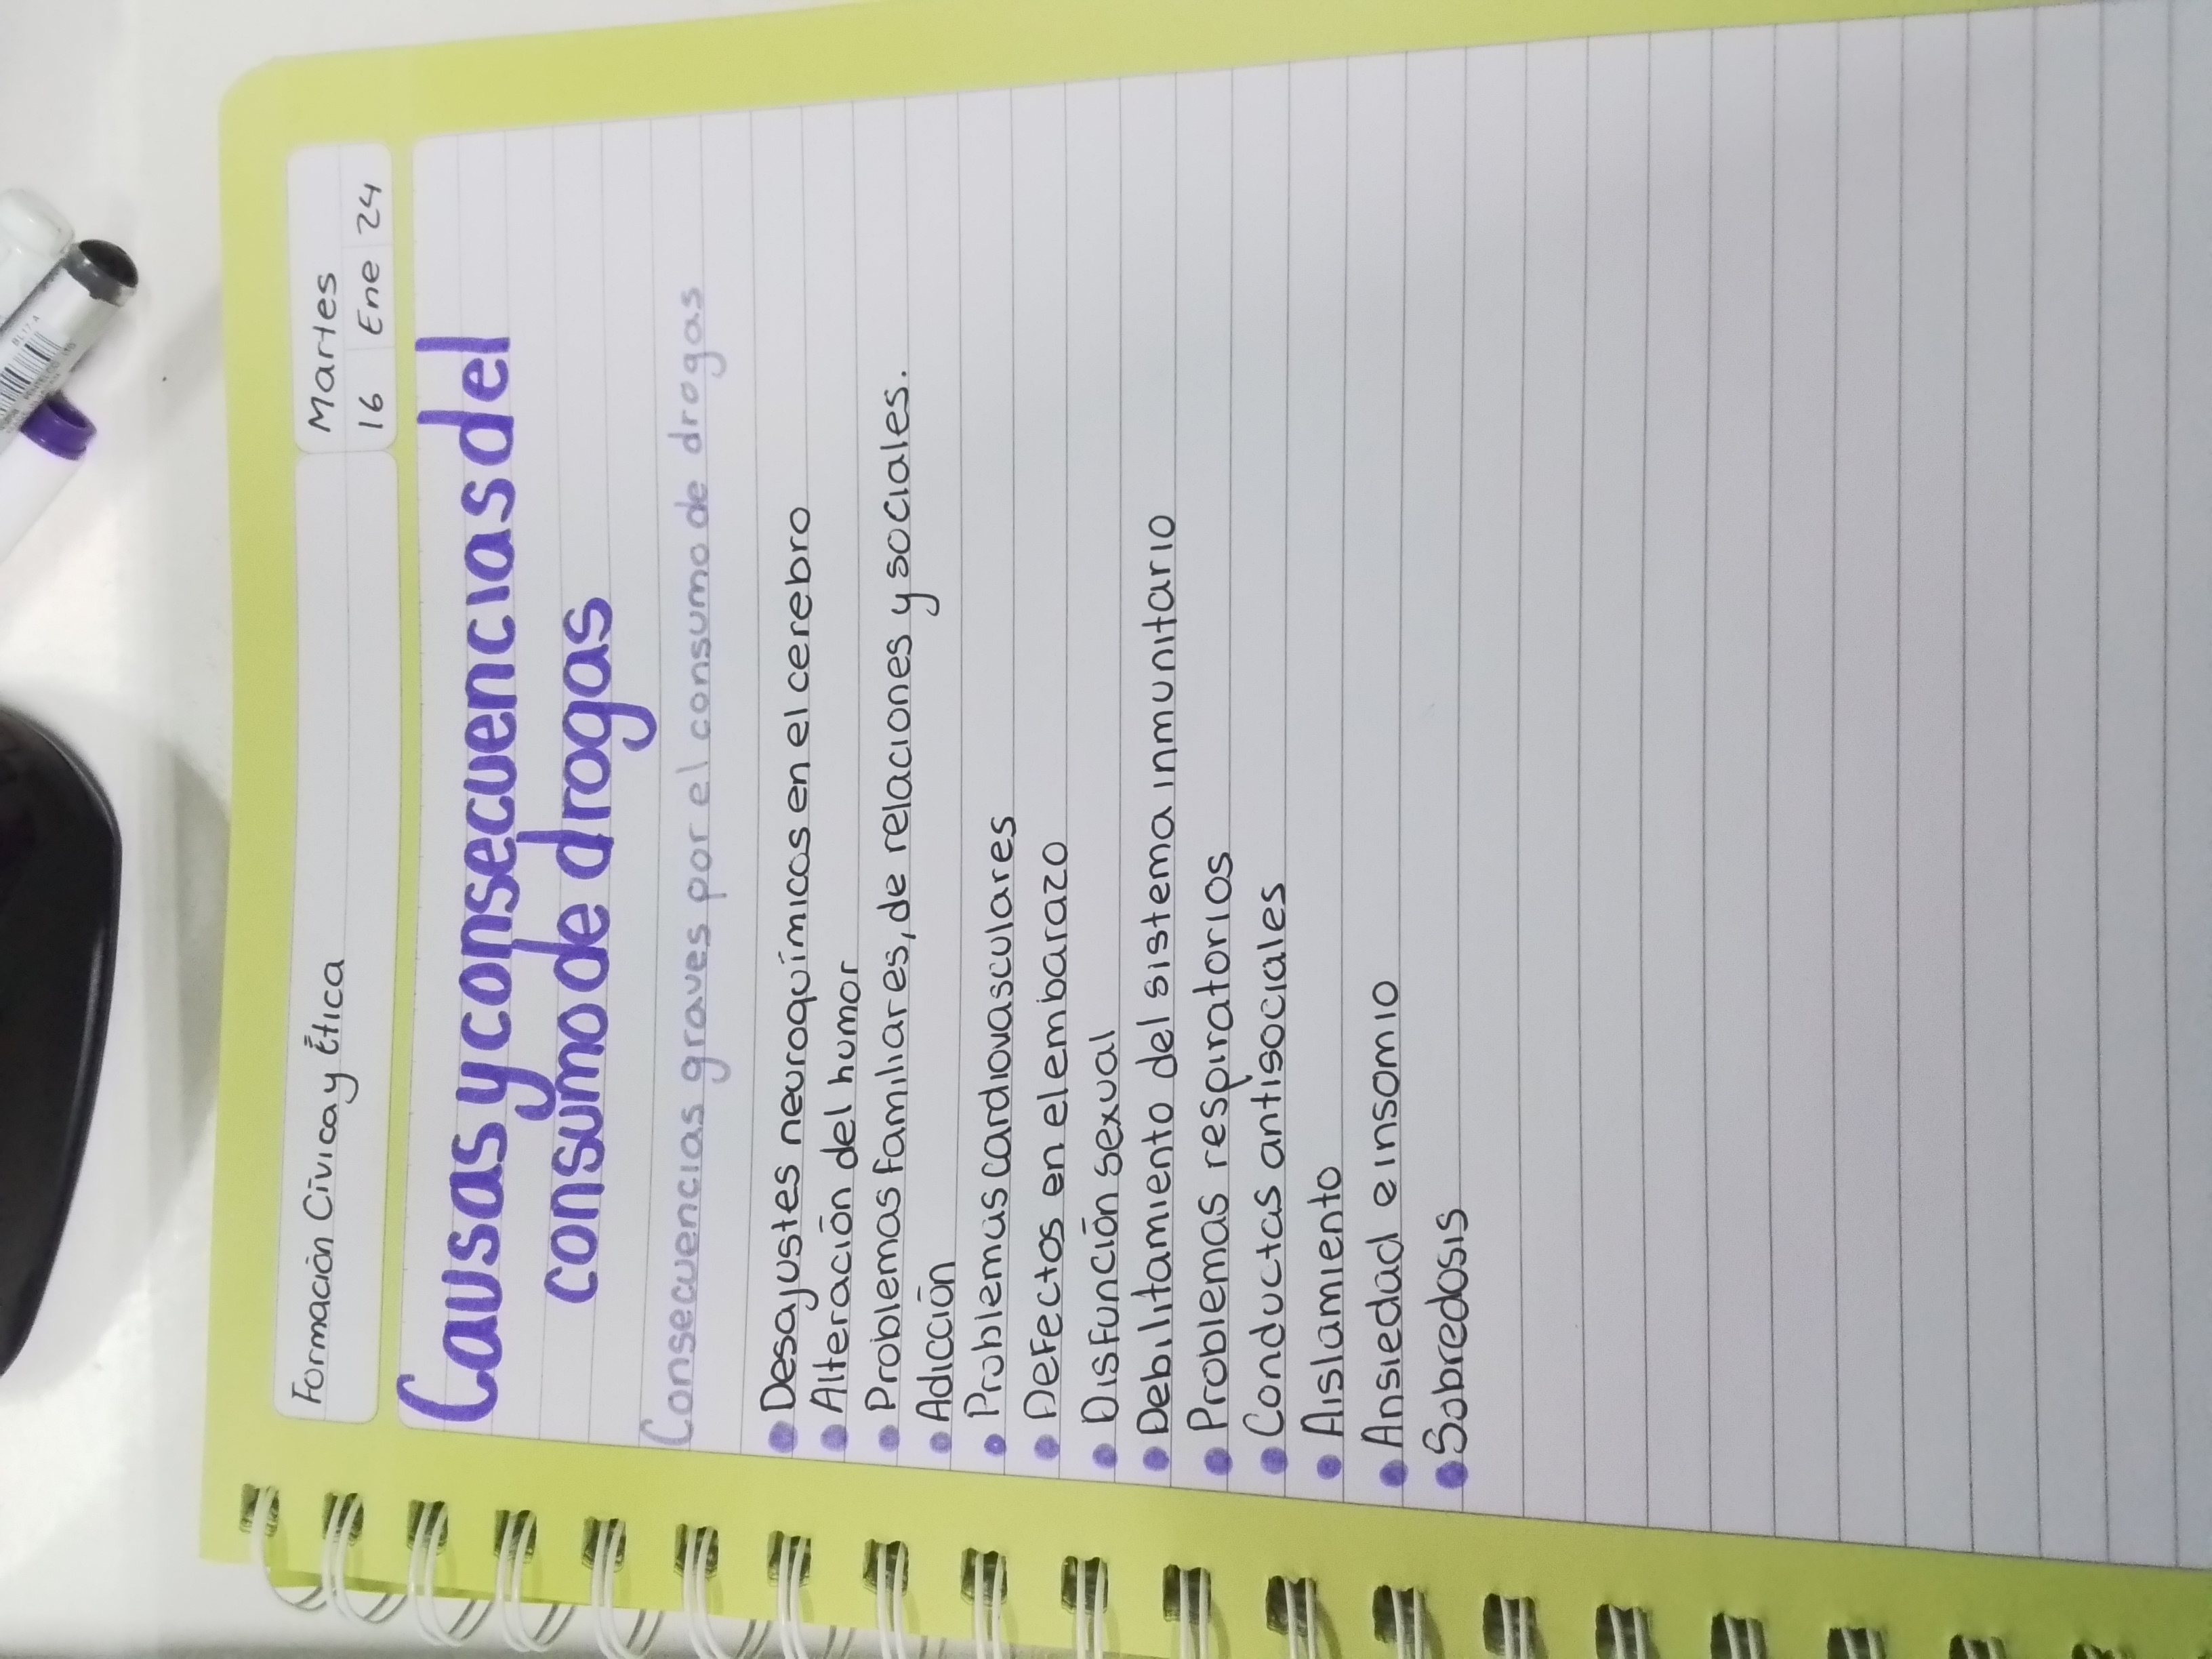 Formación Cívica y Ética
Martes
16 Ene 24
Causas y consecuencias del
consumo de drogas
Consecuencias graves por el consumo de drogas
• Desajustes neuroquímicos en el cerebro
• Alteración del humor
• Problemas familiares, de relaciones y sociales.
• Adicción
• Problemas cardiovasculares
• Defectos en el embarazo
• Disfunción sexual
• Debilitamiento del sistema inmunitario
• Problemas respiratorios
• Conductas antisociales
• Aislamiento
• Ansiedad e insomio
• Sobredosis